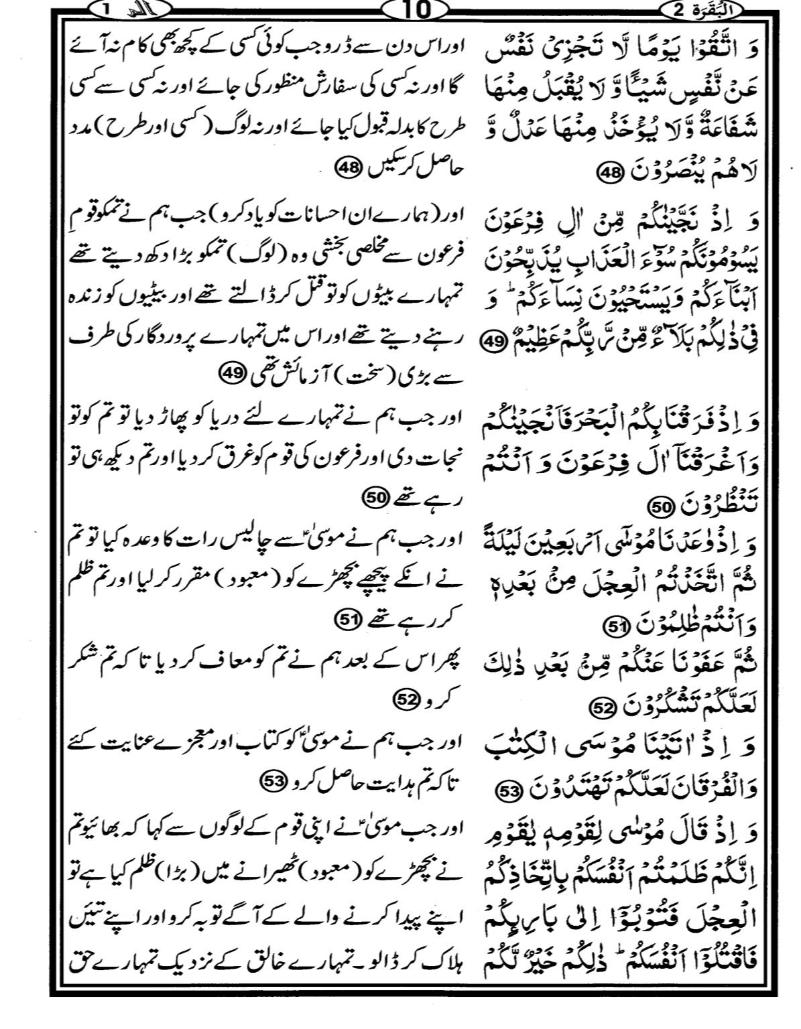 البقرة 2
10
الم 1
وَ اتَّقُوْا يَوْمًا لَّا تَجْزِیْ نَفْسٌ
عَنْ نَّفْسٍ شَيْـًٔا وَّ لَا يُقْبَلُ مِنْهَا
شَفَاعَةٌ وَّ لَا يُؤْخَذُ مِنْهَا عَدْلٌ وَّ
لَا هُمْ يُنْصَرُوْنَ 48
وَ اِذْ نَجَّيْنٰكُمْ مِّنْ اٰلِ فِرْعَوْنَ
يَسُوْمُوْنَكُمْ سُوْٓءَ الْعَذَابِ يُذَبِّحُوْنَ
اَبْنَآءَكُمْ وَيَسْتَحْيُوْنَ نِسَآءَكُمْ ؕ وَ
فِیْ ذٰلِكُمْ بَلَآءٌ مِّنْ رَّبِّكُمْ عَظِيْمٌ 49
وَ اِذْ فَرَقْنَا بِكُمُ الْبَحْرَ فَاَنْجَيْنٰكُمْ
وَ اَغْرَقْنَآ اٰلَ فِرْعَوْنَ وَ اَنْتُمْ
تَنْظُرُوْنَ 50
وَ اِذْ وٰعَدْنَا مُوْسٰٓی اَرْبَعِيْنَ لَيْلَةً
ثُمَّ اتَّخَذْتُمُ الْعِجْلَ مِنْۢ بَعْدِهٖ
وَ اَنْتُمْ ظٰلِمُوْنَ 51
ثُمَّ عَفَوْنَا عَنْكُمْ مِّنْۢ بَعْدِ ذٰلِكَ
لَعَلَّكُمْ تَشْكُرُوْنَ 52
وَ اِذْ اٰتَيْنَا مُوْسَی الْكِتٰبَ
وَالْفُرْقَانَ لَعَلَّكُمْ تَهْتَدُوْنَ 53
وَ اِذْ قَالَ مُوْسٰی لِقَوْمِهٖ يٰقَوْمِ
اِنَّكُمْ ظَلَمْتُمْ اَنْفُسَكُمْ بِاتِّخَاذِكُمُ
الْعِجْلَ فَتُوْبُوْٓا اِلٰی بَارِىِٕكُمْ
فَاقْتُلُوْٓا اَنْفُسَكُمْ ؕ ذٰلِكُمْ خَيْرٌ لَّكُمْ
اور اس دن سے ڈرو جب کوئی کسی کے کچھ بھی کام نہ آئے
گا اور نہ کسی کی سفارش منظور کی جائے اور نہ کسی سے کسی
طرح کا بدلہ قبول کیا جائے اور نہ لوگ (کسی اور طرح) مدد
حاصل کر سکیں 48
اور (ہمارے ان احسانات کو یاد کرو) جب ہم نے تمکو قومِ
فرعون سے مخلصی بخشی وہ (لوگ) تمکو بڑا دکھ دیتے تھے
تمہارے بیٹوں کو تو قتل کر ڈالتے تھے اور بیٹیوں کو زندہ
رہنے دیتے تھے اور اس میں تمہارے پروردگار کی طرف
سے بڑی (سخت) آزمائش تھی 49
اور جب ہم نے تمہارے لئے دریا کو پھاڑ دیا تو تم کو تو
نجات دی اور فرعون کی قوم کو غرق کر دیا اور تم دیکھ ہی تو
رہے تھے 50
اور جب ہم نے موسیٰؑ سے چالیس رات کا وعدہ کیا تو تم
نے انکے پیچھے بچھڑے کو (معبود) مقرر کر لیا اور تم ظلم
کر رہے تھے 51
پھر اس کے بعد ہم نے تم کو معاف کر دیا تا کہ تم شکر
کرو 52
اور جب ہم نے موسیٰؑ کو کتاب اور معجزے عنایت کئے
تاکہ تم ہدایت حاصل کرو 53
اور جب موسیٰؑ نے اپنی قوم کے لوگوں سے کہا کہ بھائیو تم
نے بچھڑے کو (معبود) ٹھیرانے میں (بڑا) ظلم کیا ہے تو
اپنے پیدا کرنے والے کے آگے توبہ کرو اور اپنے تئیں
ہلاک کر ڈالو۔ تمہارے خالق کے نزدیک تمہارے حق